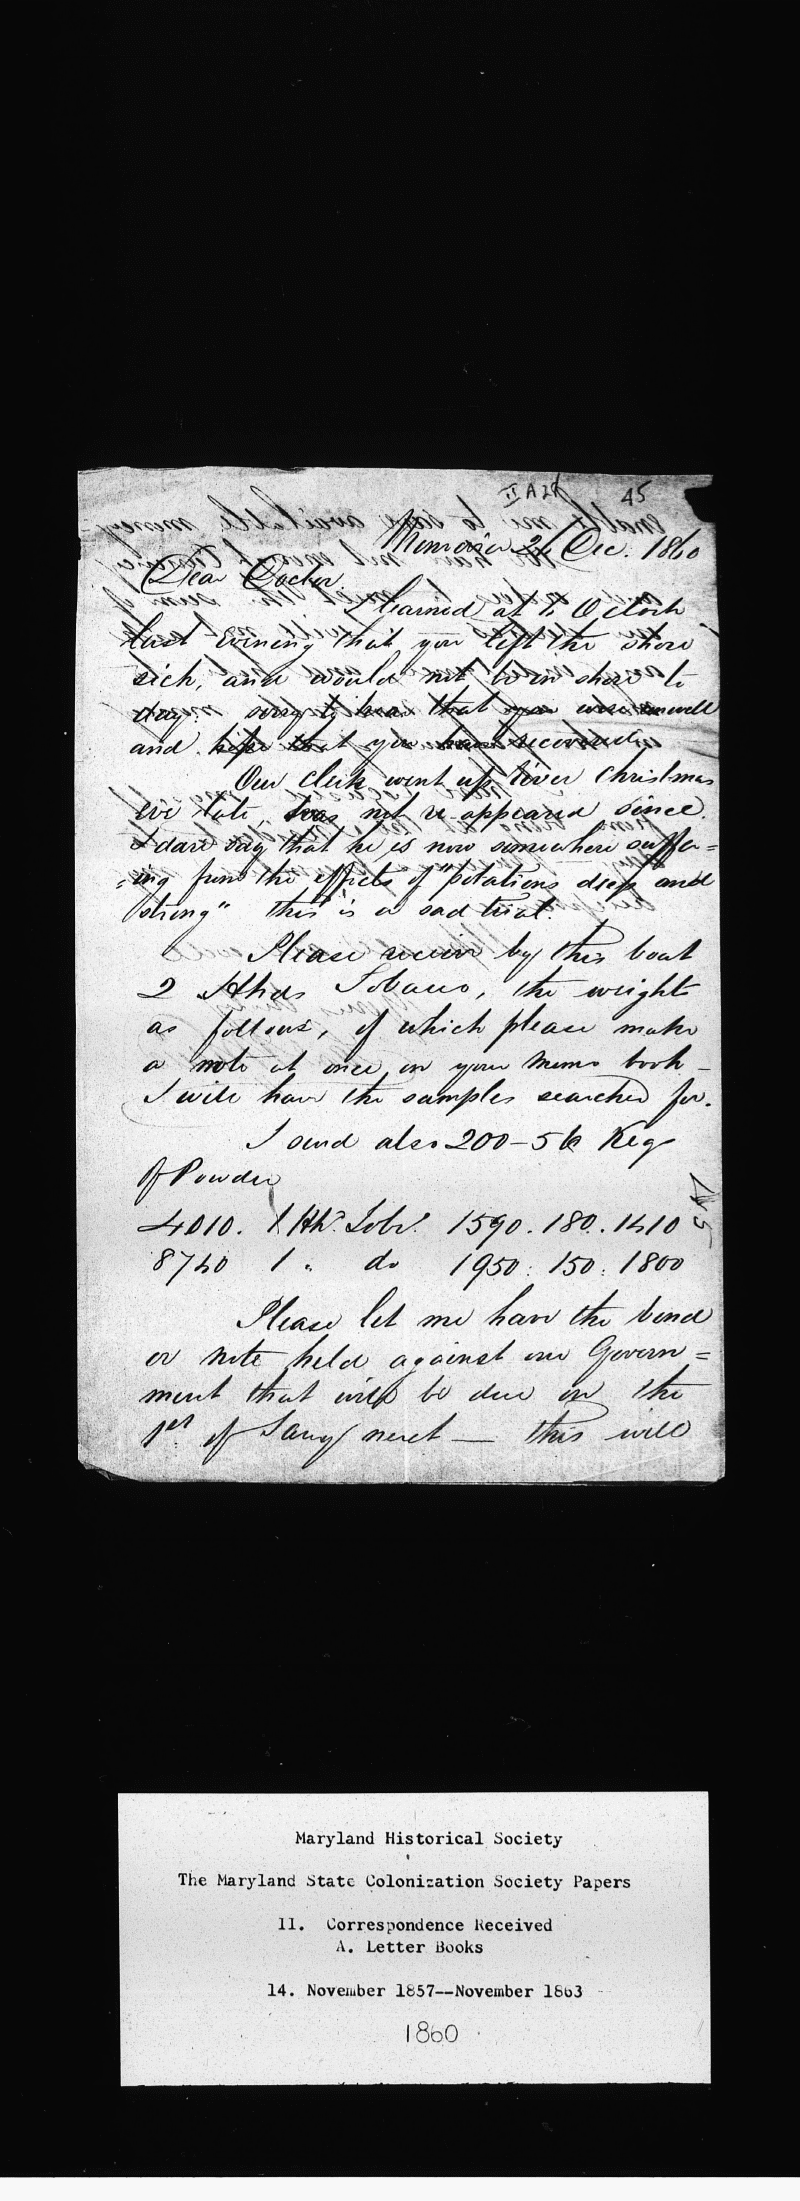 II A 28 45
Monrovia 26 Dec. 1860
Dear Doctor.
I learned at 6 O'clock
last evening that you left the store
sick, and would not be in store to
day: sorry to hear that you were unwell
and hope that you have recovered.
Our clerk went up river Christmas
eve late, has not re-appeared since.
I dare say that he is now somewhere suffer=
=ing from the effects of "potations deep and
strong" this is a sad trial.
Please receive by this boat
2 Hhds Tobacco, the weights
as follows, of which please make
a note at once in your memo book –
I will have the samples searched for.
I send also 200 – 5 lb Kegs
of Powder
4010. 1 Hhd. Tobo. 1590. 180. 1410
8740 1 " do 1950: 150: 1800
Please let me have the bond
or note held against our Govern=
ment that will be due on the
1st of Jany next — this will
Maryland Historical Society
The Maryland State Colonization Society Papers
11. Correspondence Received
A. Letter Books
14. November 1857--November 1863
1860